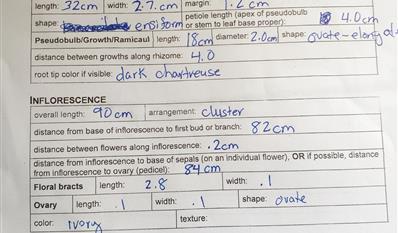 length: 32cm width: 2.7cm margin: 1.2cm
shape: ensiform petiole length (apex of pseudobulb or stem to leaf base proper): 4.0cm
Pseudobulb/Growth/Ramicaul length: 18cm diameter: 2.0cm shape: ovate-elong
distance between growths along rhizome: 4.0
root tip color if visible: dark chartreuse
INFLORESCENCE
overall length: 90cm arrangement: cluster
distance from base of inflorescence to first bud or branch: 82cm
distance between flowers along inflorescence: .2cm
distance from inflorescence to base of sepals (on an individual flower), OR if possible, distance
from inflorescence to ovary (pedicel): 84cm
Floral bracts length: 2.8 width: .1
Ovary length: .1 width: .1 shape: ovate
color: Ivory texture: